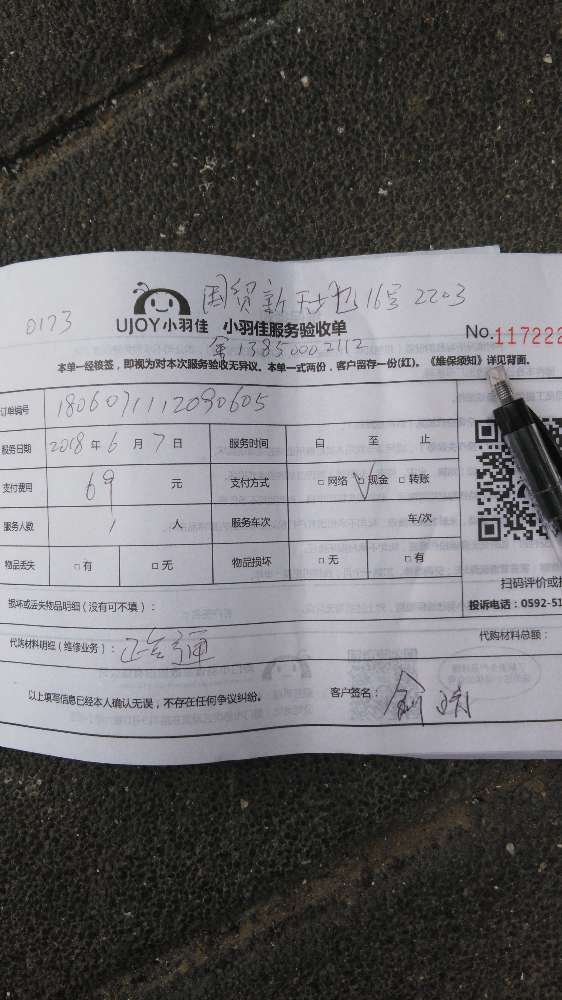 国贸新天地16号2203
0173
UJOY小羽佳 小羽佳服务验收单
No.117222
俞13850002112
本单一经核签，即视为对本次服务验收无异议。本单一式两份，客户留存一份(红)。《维保须知》详见背面。
订单编号 1806071112090605
服务日期 2018年6月7日 服务时间 自 至 止
支付费用 69 元 支付方式 □网络 ☑现金 □转账
服务人数 1 人 服务车次 车/次
物品丢失 □有 □无 物品损坏 □无 □有
扫码评价或
损坏或丢失物品明细（没有可不填）：
投诉电话：0592-51
代购材料明细（维修业务）：
代购材料总额：
以上填写信息已经本人确认无误，不存在任何争议纠纷。
客户签名：俞